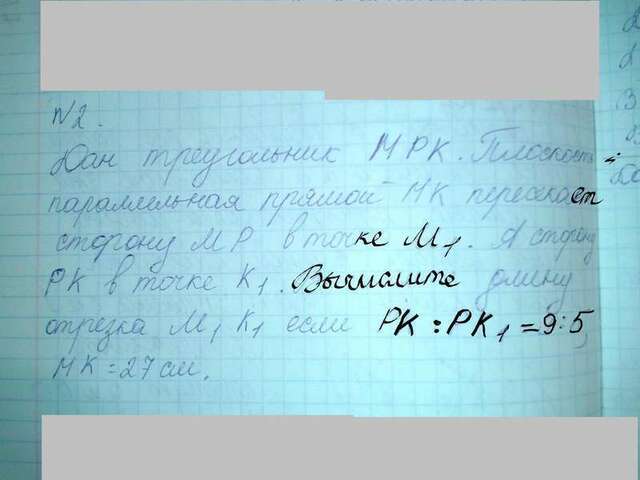 №2.
Дан треугольник МРК. Плоскость,
параллельная прямой МК пересекает
сторону МР в точке М₁. А сторону
РК в точке К₁. Вычислите длину
отрезка М₁К₁ если РК : РК₁ = 9:5,
МК = 27 см.